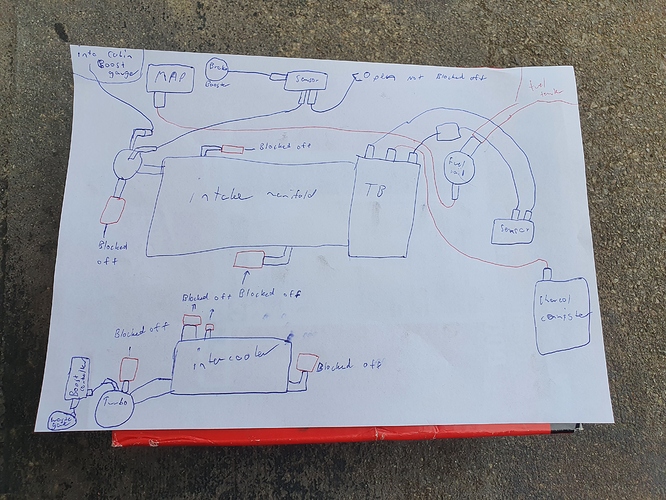 into Cabin
Boost
gauge
MAP
Brake
Booster
Sensor
plug not Blocked off
fuel
Blocked off
intake manifold
TB
fuel
Sensor
Blocked
off
Blocked off Blocked off
Charcol
Blocked off
intercooler
Blocked off
Turbo
Boost
waste
gate